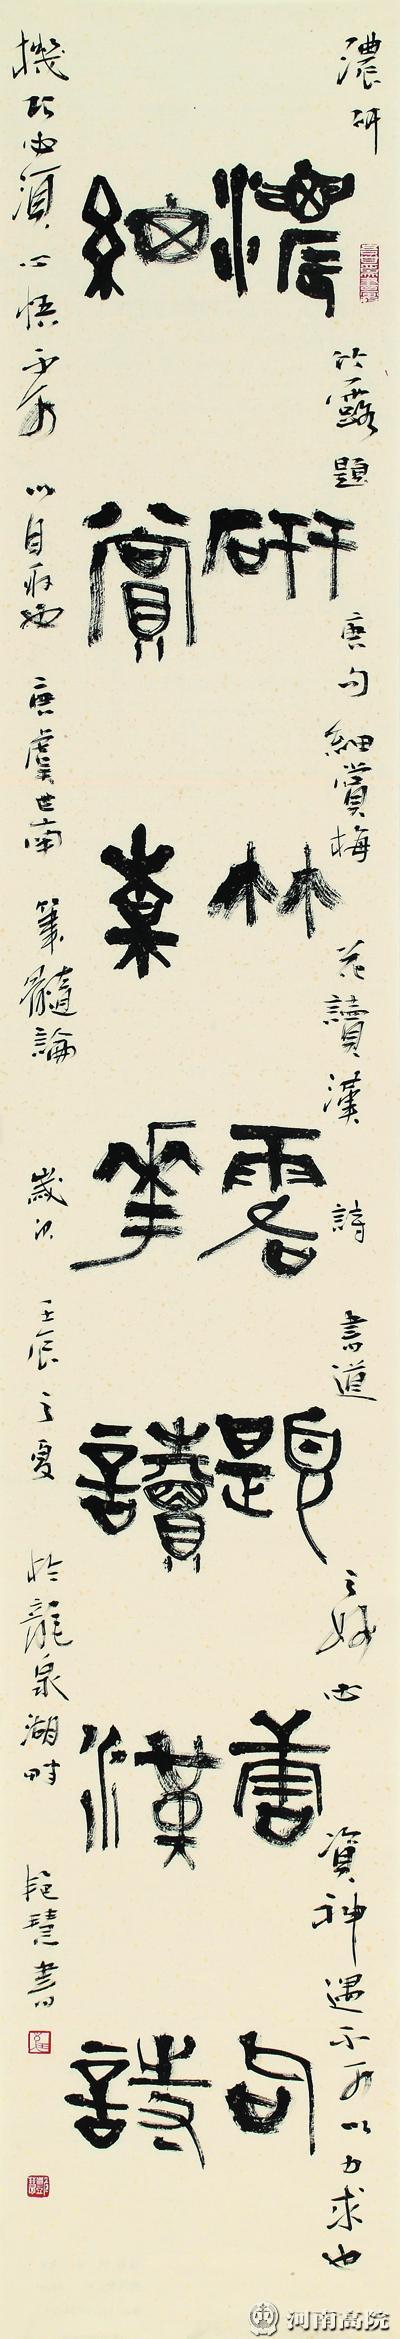 濃研竹露題唐句細賞梅花讀漢詩書道之妙必資神遇不可以力求也
濃研竹露題唐句
細賞梅花讀漢詩
機巧必須心悟不可以目取也唐虞世南筆髓論歲次壬辰之夏於龍泉湖畔艷慧書
河南高院